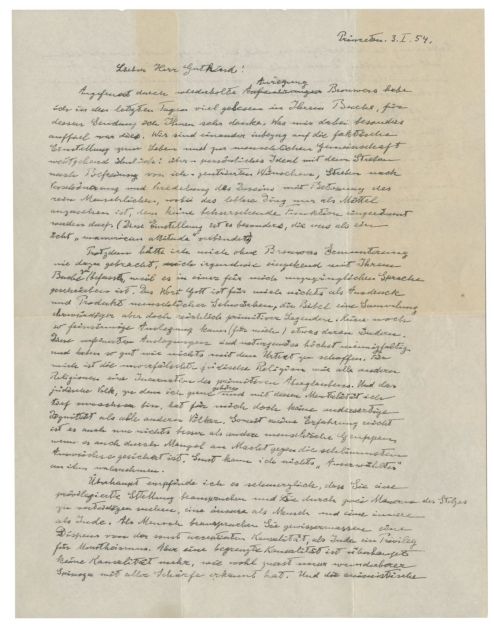 Princeton. 3. I. 54.
Lieber Herr Gutkind!
Anregung
Angefeuert durch wiederholte Brouwers habe
ich in den letzten Tagen viel gelesen in Ihrem Buche, für
dessen Sendung ich Ihnen sehr danke. Was mir dabei besonders
auffiel war dies. Wir sind einander inbezug auf die faktische
Einstellung zum Leben und zur menschlichen Gemeinschaft
weitgehend ähnlich: über-persönliches Ideal mit dem Streben
nach Befreiung von ich-zentrierten Wünschen, Streben nach
Verschönerung und Veredelung des Daseins mit Betonung des
rein Menschlichen, wobei das leblose Ding nur als Mittel
anzusehen ist, dem keine beherrschende Funktion eingeräumt
werden darf. (Diese Einstellung ist es besonders, die uns als ein
echt "unamerican attitude" verbindet)
Trotzdem hätte ich mich ohne Brouwers Ermunterung
nie dazu gebracht, mich irgendwie eingehend mit Ihrem
Buche zu befassen, weil es in einer für mich unzugänglichen Sprache
geschrieben ist. Das Wort Gott ist für mich nichts als Ausdruck
und Produkt menschlicher Schwächen, die Bibel eine Sammlung
ehrwürdiger aber doch reichlich primitiver Legenden. Keine noch
so feinsinnige Auslegung kann (für mich) etwas daran ändern.
Diese verfeinerten Auslegungen sind naturgemäss höchst mannigfaltig
und haben so gut wie nichts mit dem Urtext zu schaffen. Für
mich ist die unverfälschte jüdische Religion wie alle anderen
Religionen eine Incarnation des primitiven Aberglaubens. Und das
jüdische Volk, zu dem ich gerne gehöre und mit dessen Mentalität ich
tief verwachsen bin, hat für mich doch keine andersartige
Dignität als alle anderen Völker. Soweit meine Erfahrung reicht
ist es auch um nichts besser als andere menschliche Gruppen
wenn es auch durch Mangel an Macht gegen die schlimmsten
Auswüchse gesichert ist. Sonst kann ich nichts „Auserwähltes"
an ihm wahrnehmen.
Überhaupt empfinde ich es schmerzlich, dass Sie eine
privilegierte Stellung beanspruchen und sie durch zwei Mauern des Stolzes
zu verteidigen suchen, eine äussere als Mensch und eine innere
als Jude. Als Mensch beanspruchen Sie gewissermassen einen
Dispens von der sonst acceptierten Kausalität, als Jude ein Privileg
für Monotheismus. Aber eine begrenzte Kausalität ist überhaupt
keine Kausalität mehr, wie wohl zuerst unser wunderbarer
Spinoza mit aller Schärfe erkannt hat. Und die animistische